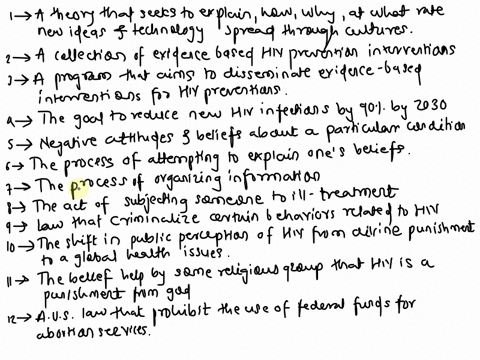 1→ A theory that seeks to explain, how, why, at what rate
new ideas & technology spread through cultures.
2→ A collection of evidence based HIV prevention interventions
3→ A program that aims to disseminate evidence-based
interventions for HIV preventions.
4→ The goal to reduce new HIV infections by 90% by 2030
5→ Negative attitudes & beliefs about a particular condition
6→ The process of attempting to explain one's beliefs.
7→ The process of organizing information
8→ The act of subjecting someone to ill-treatment
9→ law that criminalize certain behaviors related to HIV
10→ The shift in public perception of HIV from divine punishment
to a global health issues.
11→ The belief help by some religious group that HIV is a
punishment from god
12→ A.U.S. law that prohibit the use of federal funds for
abortion services.